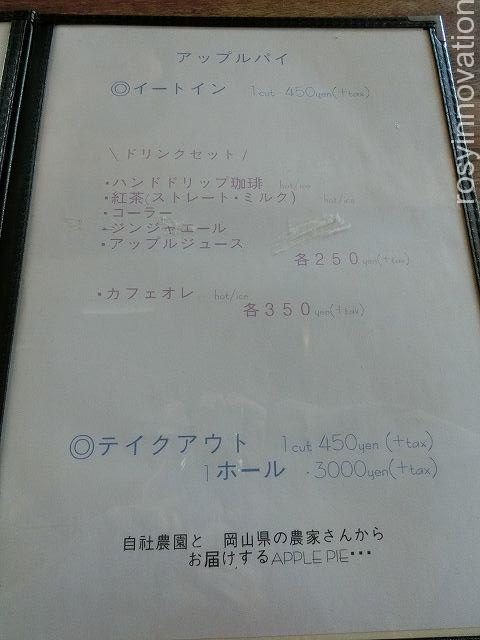 アップルパイ
◎イートイン 1cut 450yen(+tax)
\ドリンクセット/
・ハンドドリップ珈琲 hot/ice
・紅茶(ストレート・ミルク) hot/ice
・コーラー
・ジンジャエール
・アップルジュース
各250yen(+tax)
・カフェオレ hot/ice
各350yen(+tax)
◎テイクアウト 1cut 450yen (+tax)
1ホール ・3000yen(+tax)
自社農園と 岡山県の農家さんから
お届けするAPPLE PIE・・・
rosyinnovation